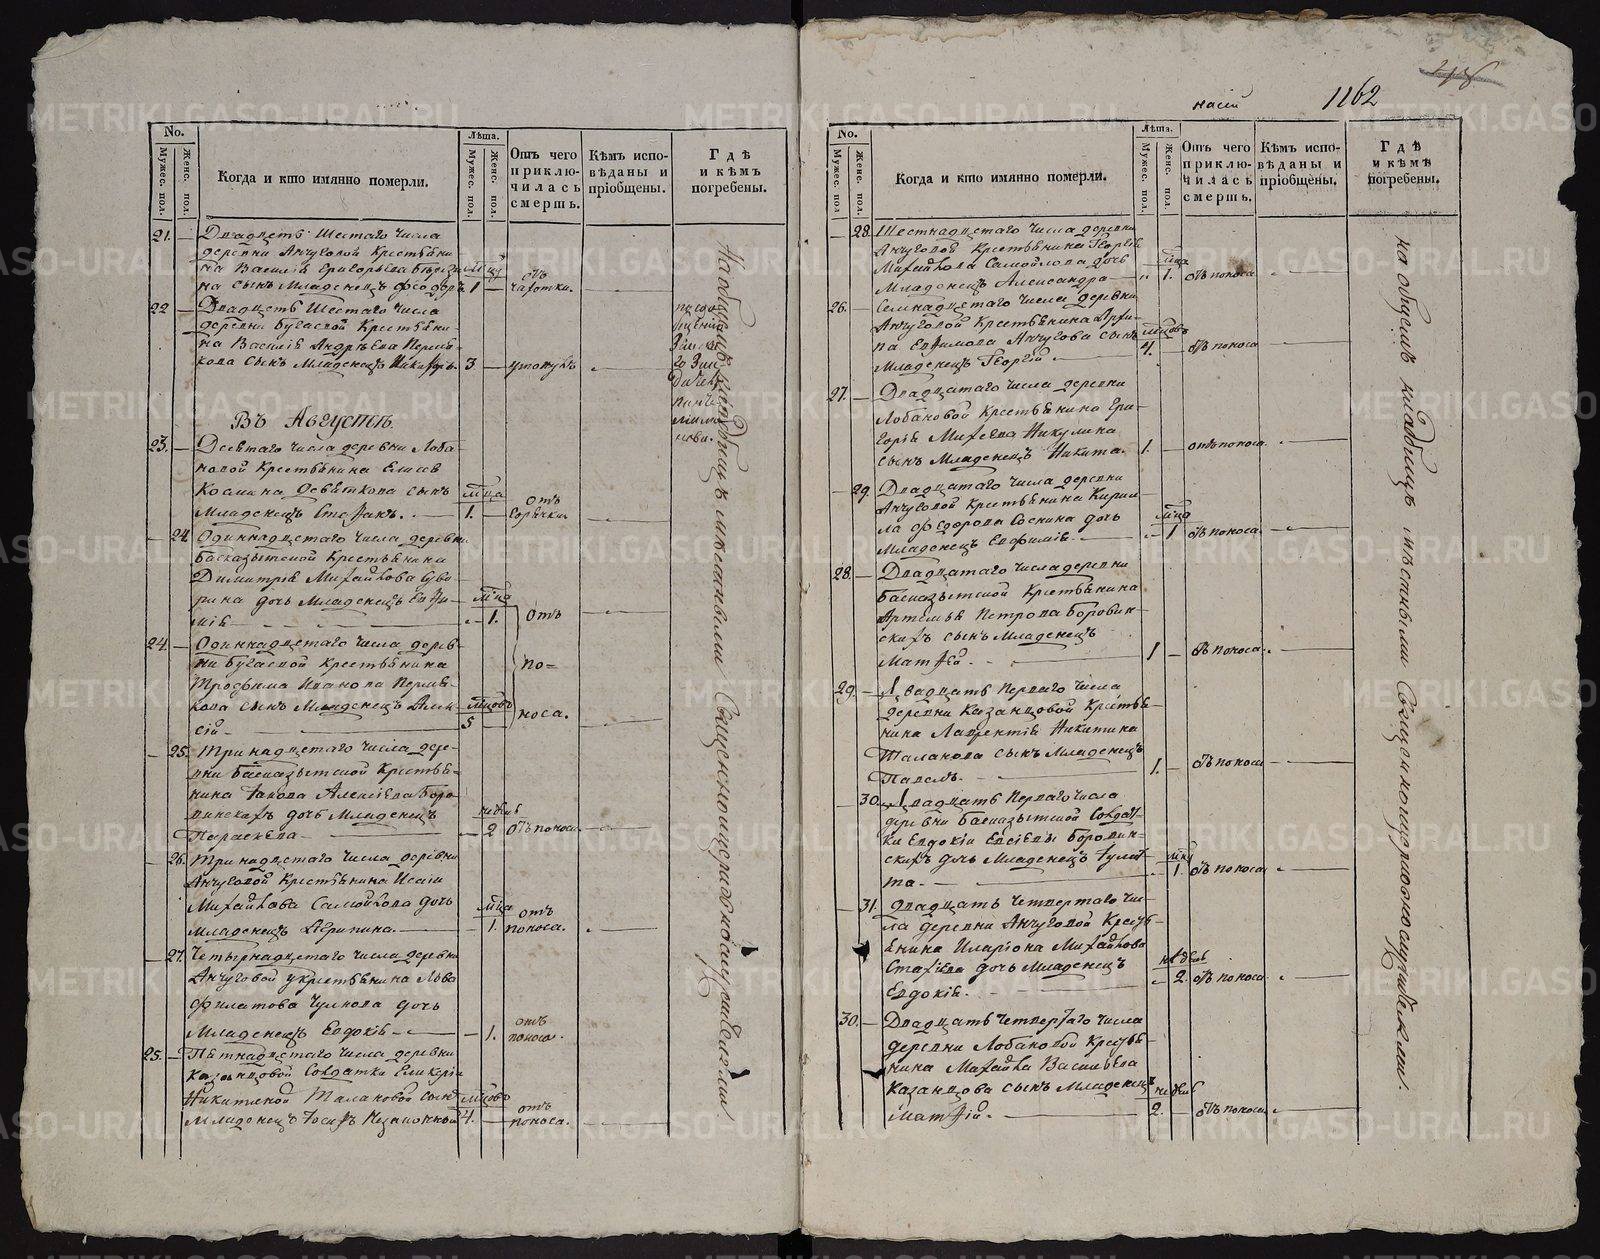 No.
Мужес. пол.
Женс. пол.
Когда и кто имянно померли.
Лѣта.
Мужес. пол.
Женс. пол.
Отъ чего приключилась смерть.
Кѣмъ исповѣданы и пріобщены.
Гдѣ и кѣмъ погребены.
21. — Двадцеть шестаго числа
деревни Анчуговой Крестьяни-
на Василія Григорьева
на сынъ Младенецъ Феодоръ 1 — отъ чахотки.
22 Двадцеть Шестаго числа
деревни Бугаевой Крестьяни-
на Василія Андрѣева Перша-
кова сынъ Младенецъ Никифоръ. 3 — утонулъ
Въ Августѣ.
23. — Девятаго числа деревни Лоба-
новой Крестьянина Елисея
Космина Девяткова сынъ мца
Младенецъ Стефанъ. 1. — отъ горячки
— 24 Одиннадцетаго числа деревни
Басказытской Крестьянина
Димитрія Михайлова
рина дочь Младенецъ Евфи- мца
мія — 1. отъ
24. — Одиннадцетаго числа дерев-
ни Бугаевой Крестьянина
Трофима Иванова Перша- по-
кова сынъ Младенецъ Алек- мцовъ
сій — 5 носа.
— 25. Тринадцетаго числа дере-
вни Басказытской Крестья-
нина Іакова Алексіева Боро-
винскахъ дочь Младенецъ недѣль
Параскева — 2 отъ поноса
— 26. Тринадцетаго числа деревни
Анчуговой Крестьянина Исаіи
Михайлова Самойлова дочь мца
Младенецъ Екатерина. — 1. отъ поноса.
— 27. Четырнадцетаго числа деревни
Анчуговой у крестьянина Льва
Филатова Чулкова дочь
Младенецъ Евдокія — 1. отъ поноса.
25. — Пятнадцетаго числа деревни
Казанцовой Солдатки Гликеріи
Никитиной Талановой сынъ мцовъ
Младенецъ Іосифъ Незаконный 4. — отъ поноса.
На общемъ кладбищѣ мѣстными Священноцерковнослужителями.
1162
No.
Мужес. пол.
Женс. пол.
Когда и кто имянно померли.
Лѣта.
Мужес. пол.
Женс. пол.
Отъ чего приключилась смерть.
Кѣмъ исповѣданы и пріобщены.
Гдѣ и кѣмъ погребены.
— 28. Шестнадцетаго числа деревни
Анчуговой Крестьянина Георгія
Михайлова Самойлова дочь мца
Младенецъ Александра — 1. отъ поноса
26. — Семнадцетаго числа деревни
Анчуговой Крестьянина
Ефимова Анчугова сынъ мцовъ
Младенецъ Георгій. 4. отъ поноса
27. — Двадцатаго числа деревни
Лобановой Крестьянина Гри-
горія Михеева Никулина
сынъ Младенецъ Никита. 1. — отъ поноса.
— 29. Двадцатаго числа деревни
Анчуговой Крестьянина Кирил-
ла Федорова Соснина дочь мца
Младенецъ Евфимія. — 1 отъ поноса
28. — Двадцатаго числа деревни
Басказытской Крестьянина
Артемья Петрова Боровин-
скихъ сынъ Младенецъ
Матфей. 1 — отъ поноса.
29. — Двадцать Перваго числа
деревни Казанцовой Крестья-
нина Лаврентія Никитина
Таланова сынъ Младенецъ
Павелъ. 1. — отъ поноса
— 30. Двадцать Перваго числа
деревни Басказытской Солдат-
ки Евдокіи Евсіевы Боровин-
скихъ дочь Младенецъ Іулит- мца
та. — 1. отъ поноса
— 31. Двадцать Четвертаго чис-
ла деревни Анчуговой Кресть-
янина Иларіона Михайлова
дочь Младенецъ недѣль
Евдокія. — 2. отъ поноса
30. — Двадцать Четвертаго числа
деревни Лобановой Кресть-
янина Михайла Васильева
Казанцова сынъ Младенецъ недѣль
Матфій. 2. — отъ поноса
на общемъ кладбищѣ мѣстными Священноцерковнослужителями.
METRIKI.GASO-URAL.RU